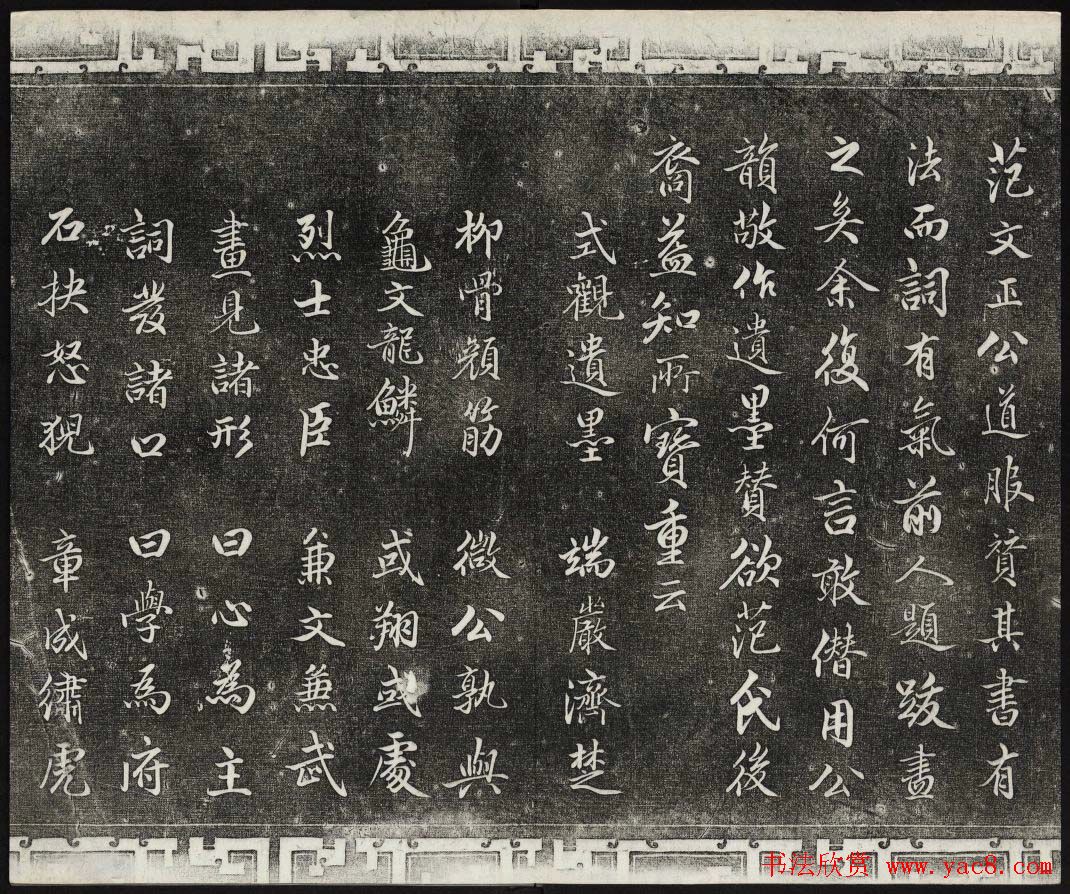 范文正公道服賛其書有
法而詞有氣前人題跋盡
之矣余復何言敢僭用公
韻敬作遺墨賛欲范氏後
裔益知所寶重云
式觀遺墨 端嚴濟楚
柳骨顏筋 微公孰與
龜文龍鱗 或翔或處
烈士忠臣 兼文兼武
畫見諸形 曰心為主
詞發諸口 曰學為府
石抉怒猊 章成繡虎
书法欣赏 www.yac8.com